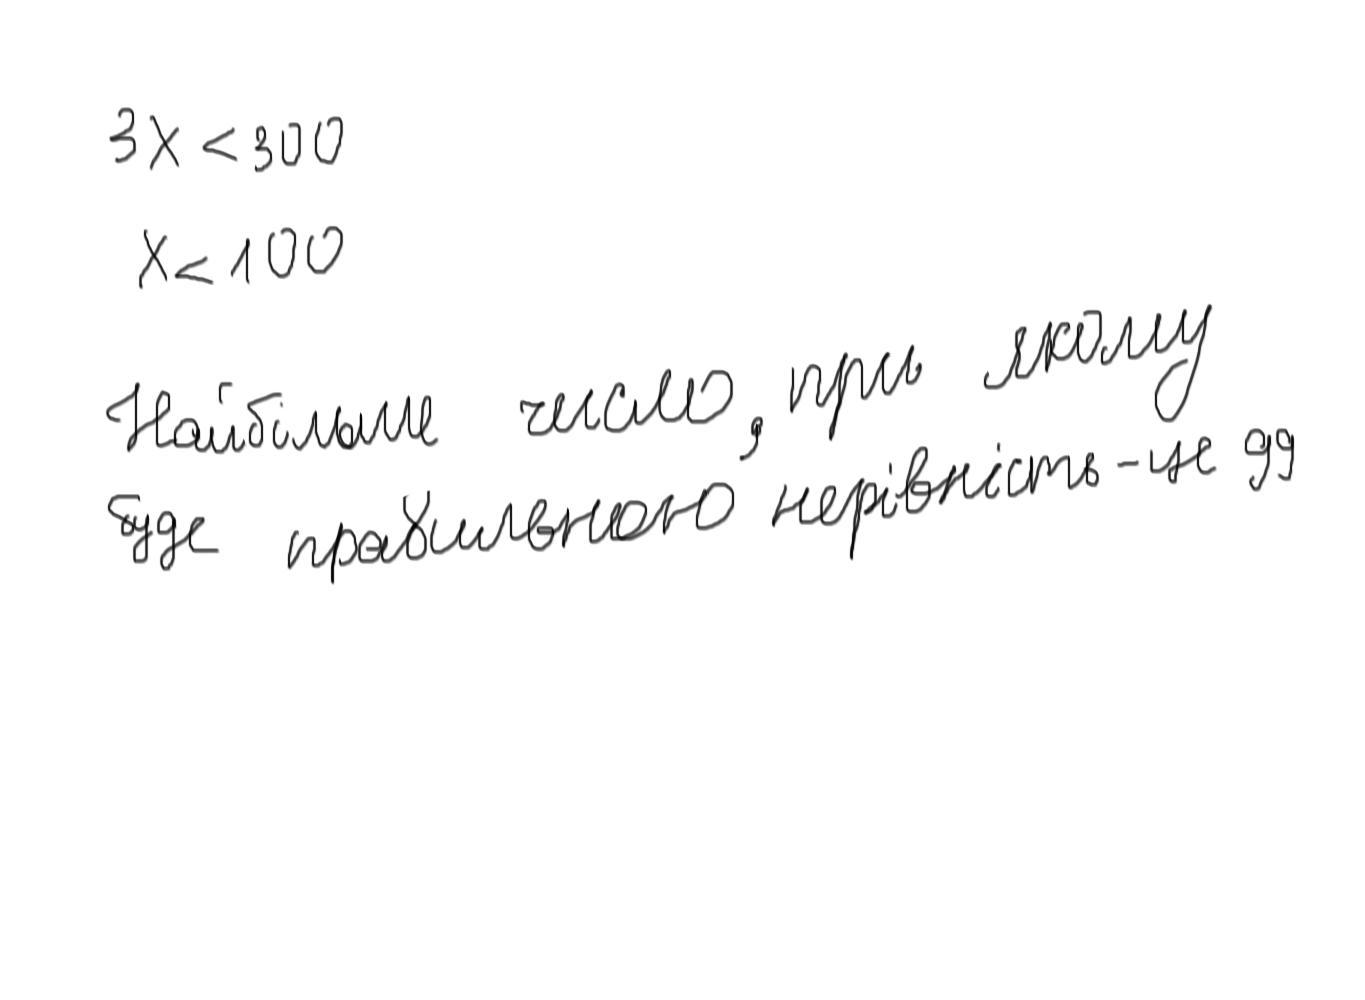 3x < 300
x < 100
Найбільше число, при якому
буде правильною нерівність - це 99